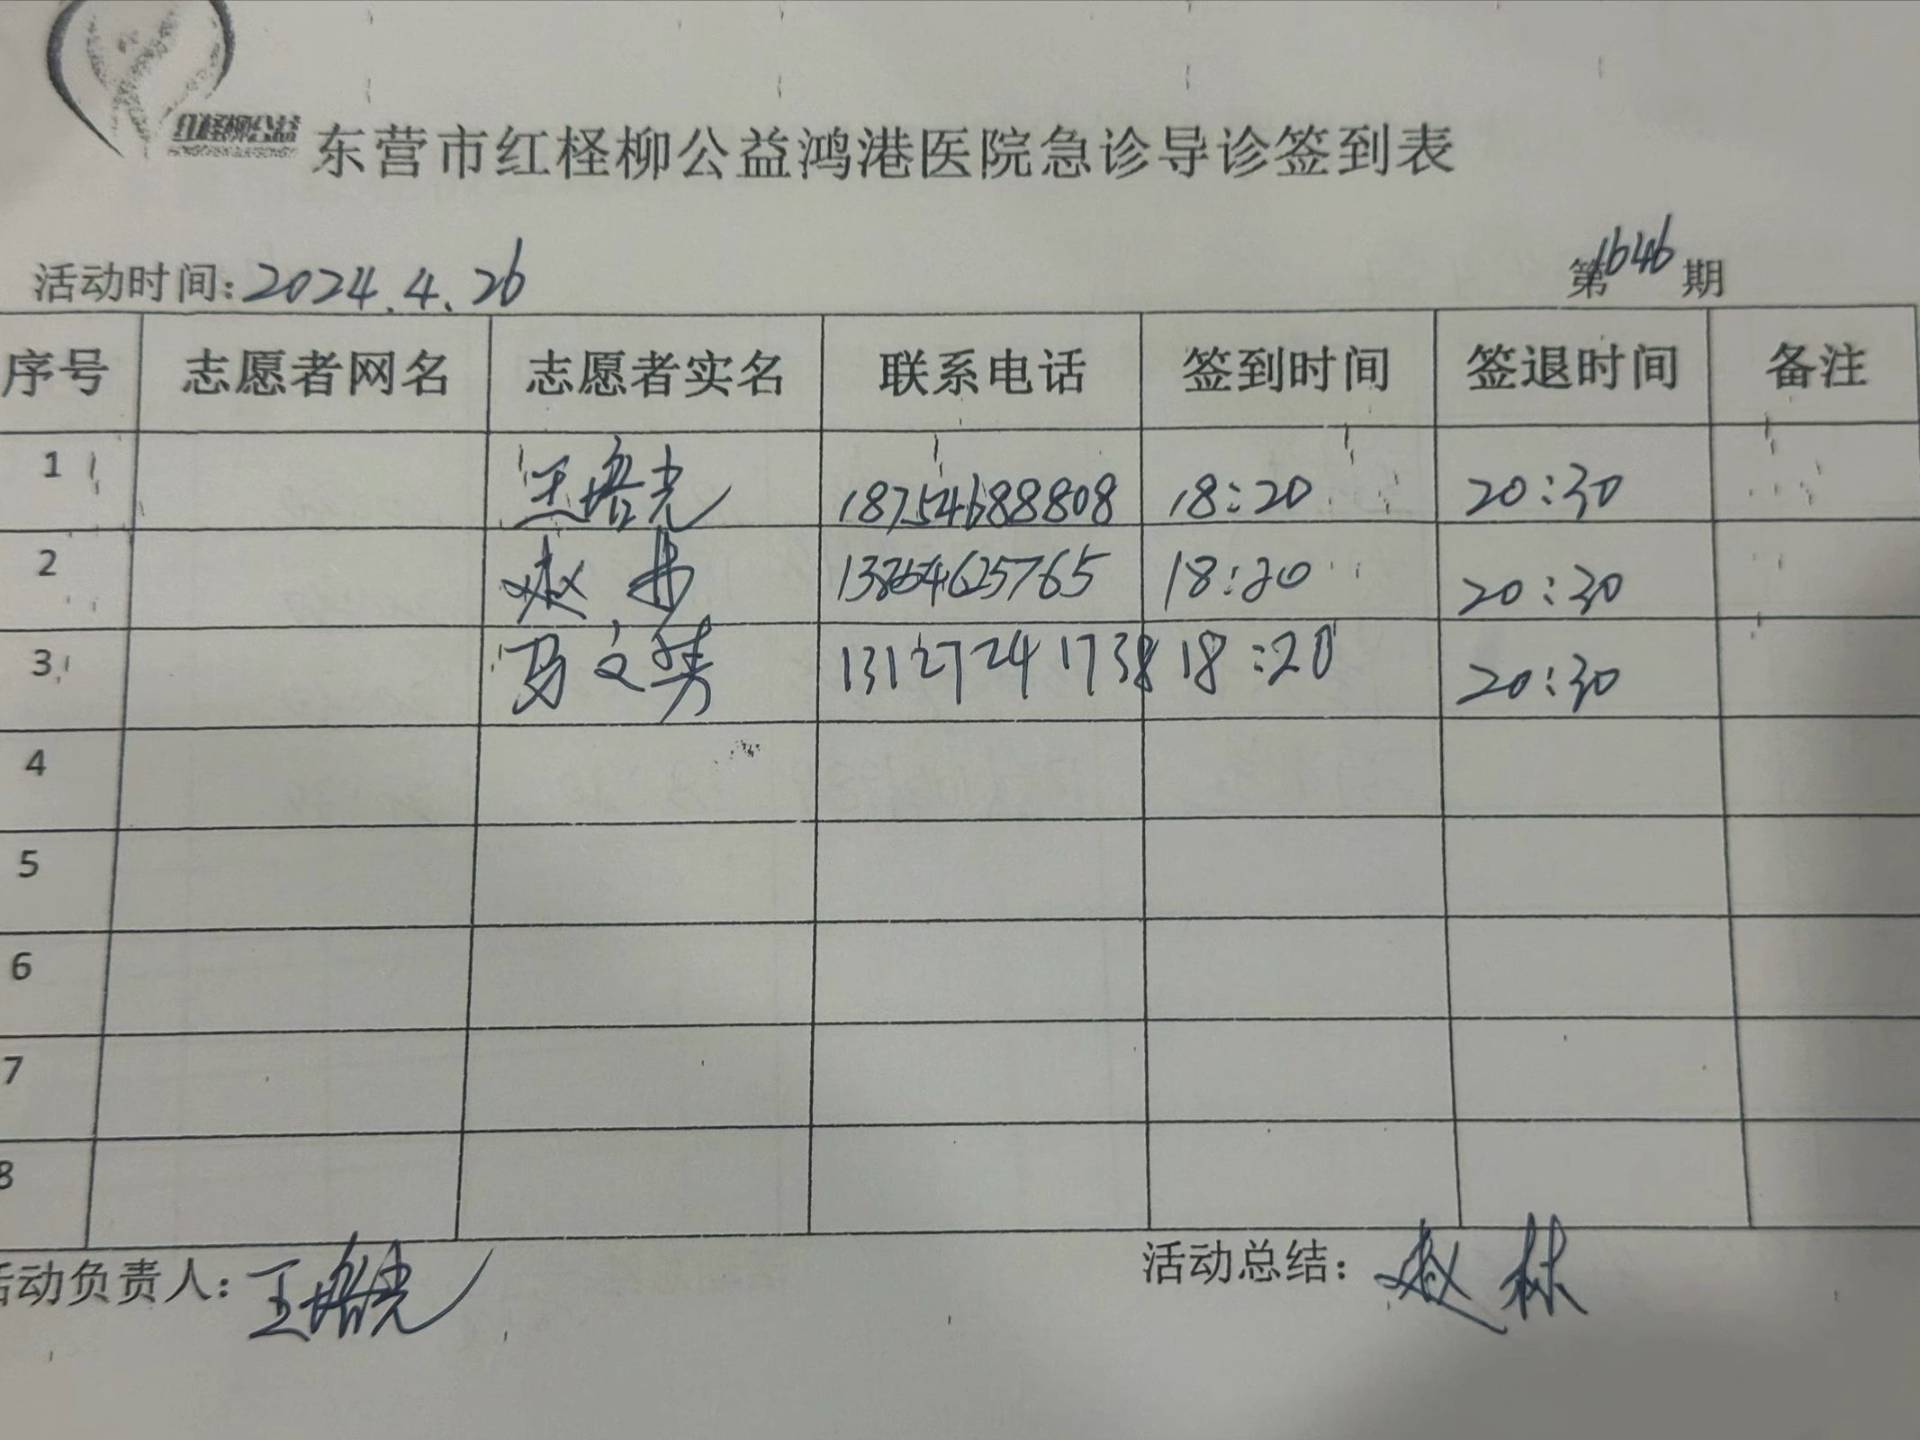 红柽柳公益
东营市红柽柳公益鸿港医院急诊导诊签到表
活动时间:2024.4.26 第1646期
序号 志愿者网名 志愿者实名 联系电话 签到时间 签退时间 备注
1 王培光 18754688808 18:20 20:30
2 赵 13864625765 18:20 20:30
3 马文 13127241738 18:20 20:30
4
5
6
7
8
活动负责人:王培光 活动总结:赵林